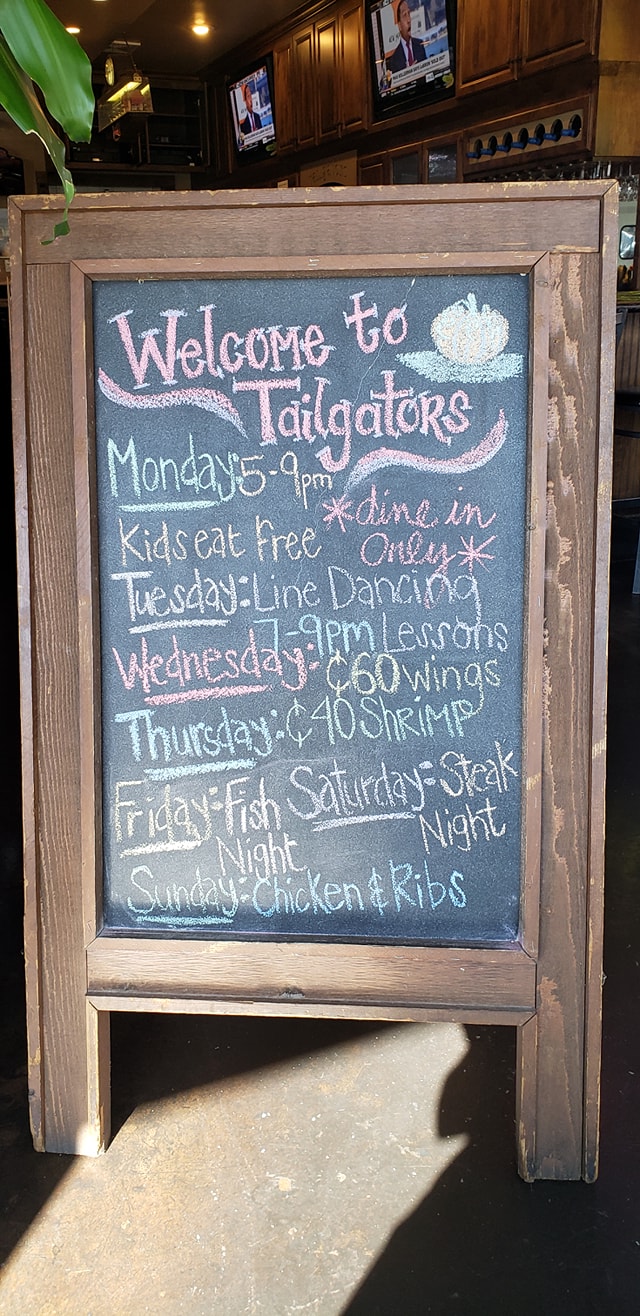 Welcome to
Tailgators
Monday: 5-9pm
Kids eat free
*dine in
only*
Tuesday: Line Dancing
7-9pm Lessons
Wednesday: ¢60 wings
Thursday: ¢40 Shrimp
Friday: Fish
Night
Saturday: Steak
Night
Sunday: Chicken & Ribs